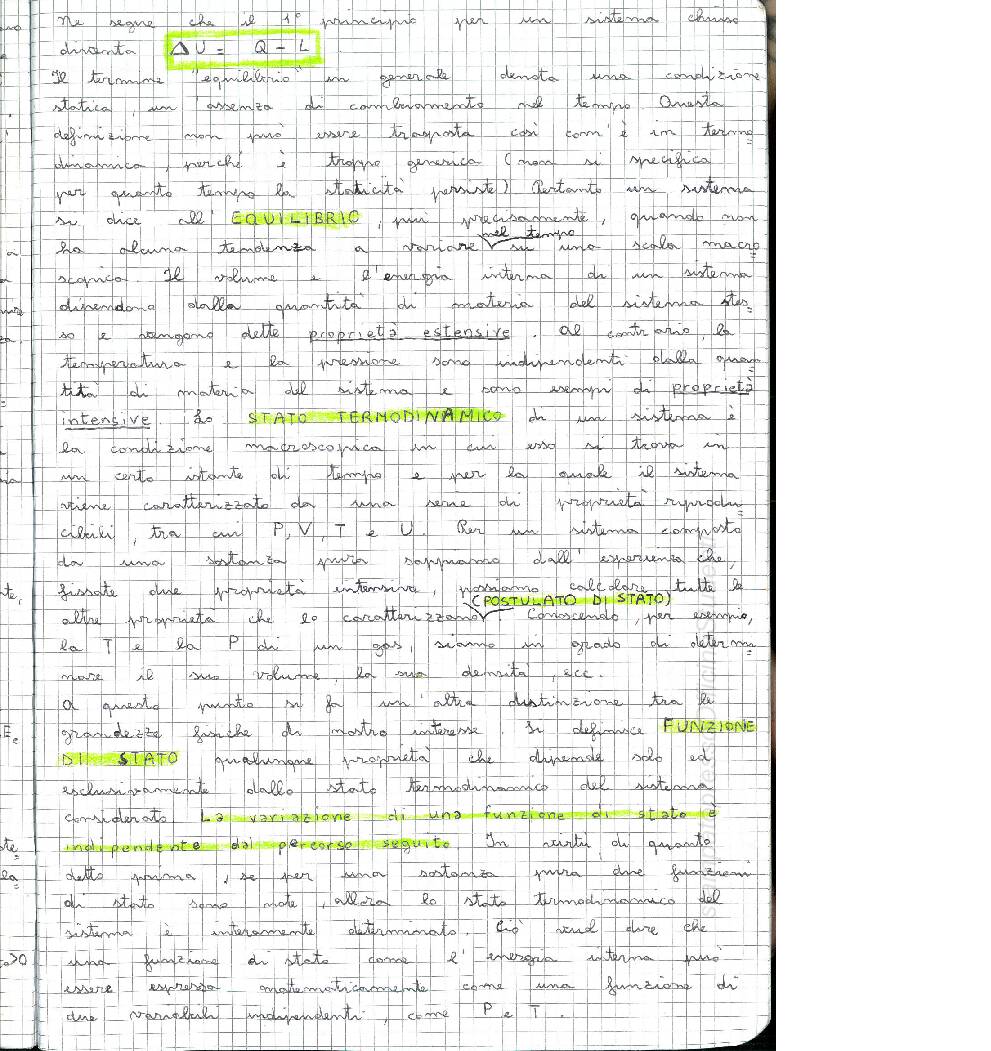 Ne segue che il 1° principio per un sistema chiuso
diventa ΔU = Q - L
Il termine "equilibrio" in generale denota una condizione
statica, un'assenza di cambiamento nel tempo. Questa
definizione non può essere trasposta così com'è in termo
dinamica, perché è troppo generica (non si specifica
per quanto tempo la staticità persiste). Pertanto un sistema
si dice all'EQUILIBRIO, più precisamente, quando non
nel tempo
ha alcuna tendenza a variare su una scala macro
scopica. Il volume e l'energia interna di un sistema
dipendono dalla quantità di materia del sistema stes
so e vengono dette proprietà estensive. Al contrario, la
temperatura e la pressione sono indipendenti dalla quan
tità di materia del sistema e sono esempi di proprietà
intensive. Lo STATO TERMODINAMICO di un sistema è
la condizione macroscopica in cui esso si trova in
un certo istante di tempo e per la quale il sistema
viene caratterizzato da una serie di proprietà riprodu
cibili, tra cui P, V, T e U. Per un sistema composto
da una sostanza pura sappiamo dall'esperienza che,
fissate due proprietà intensive, possiamo calcolare tutte le
(POSTULATO DI STATO)
altre proprietà che lo caratterizzano. Conoscendo, per esempio,
la T e la P di un gas, siamo in grado di determi
nare il suo volume, la sua densità, ecc.
A questo punto si fa un'altra distinzione tra le
grandezze fisiche di nostro interesse. Si definisce FUNZIONE
DI STATO qualunque proprietà che dipende solo ed
esclusivamente dallo stato termodinamico del sistema
considerato. La variazione di una funzione di stato è
indipendente dal percorso seguito. In virtù di quanto
detto prima, se per una sostanza pura due funzioni
di stato sono note, allora lo stato termodinamico del
sistema è interamente determinato. Ciò vuol dire che
una funzione di stato come l'energia interna può
essere espressa matematicamente come una funzione di
due variabili indipendenti, come P e T.